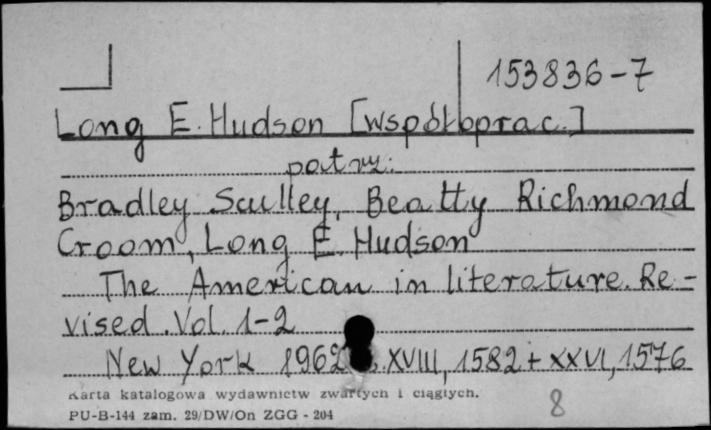 153836-7
Long E. Hudson [współoprac.]
patrz:
Bradley Sculley, Beatty Richmond
Croom, Long E. Hudson
The American in literature. Re-
vised. Vol. 1-2
New York 1962 s. XVIII, 1582 + XXVI, 1576
Karta katalogowa wydawnictw zwartych i ciągłych.
8
PU-B-144 zam. 29/DW/On ZGG - 204